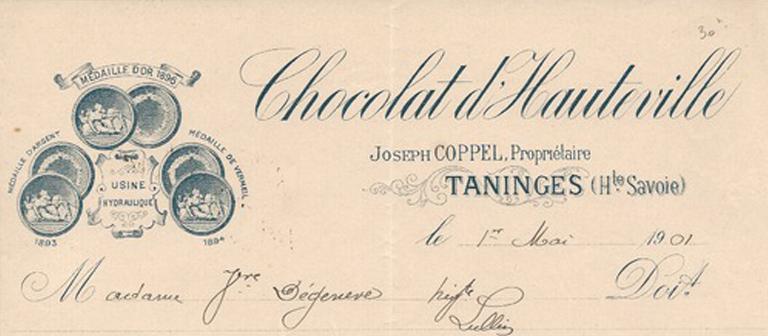 30
MÉDAILLE D'OR 1896
Chocolat d'Hauteville
MÉDAILLE D'ARGENT
MÉDAILLE DE VERMEIL
JOSEPH COPPEL, Propriétaire
USINE
HYDRAULIQUE
TANINGES (Hte Savoie)
1893
1894
le 1er Mai 1901
Madame Doit
Lullin